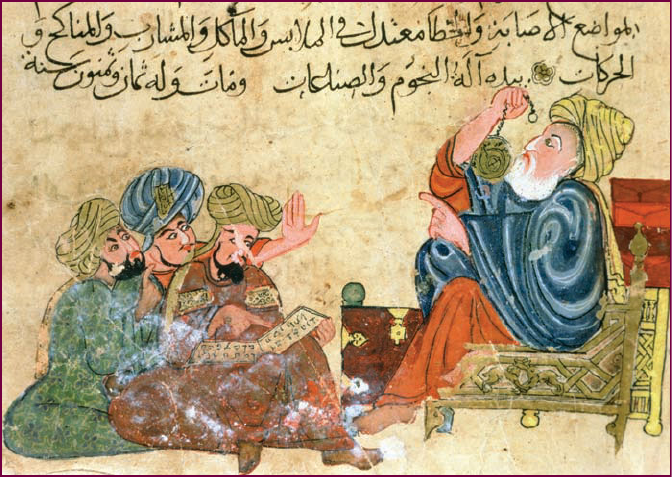 المواضع الاصابة معتدلا في الملابس والمآكل والمشارب والمناكح و
الحركات بيده آلة النجوم والصناعات ومات وله ثمان سنة